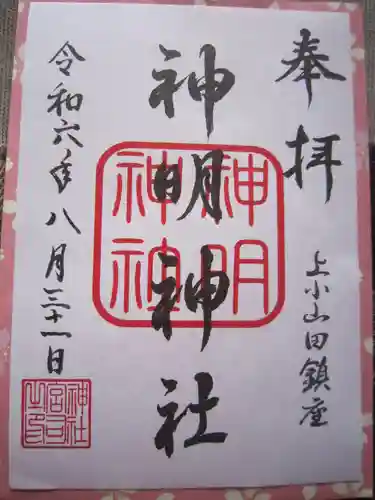 奉拝
上小山田鎮座
神明神社
神明
神社
令和六年八月三十一日
神社
宮司
之印